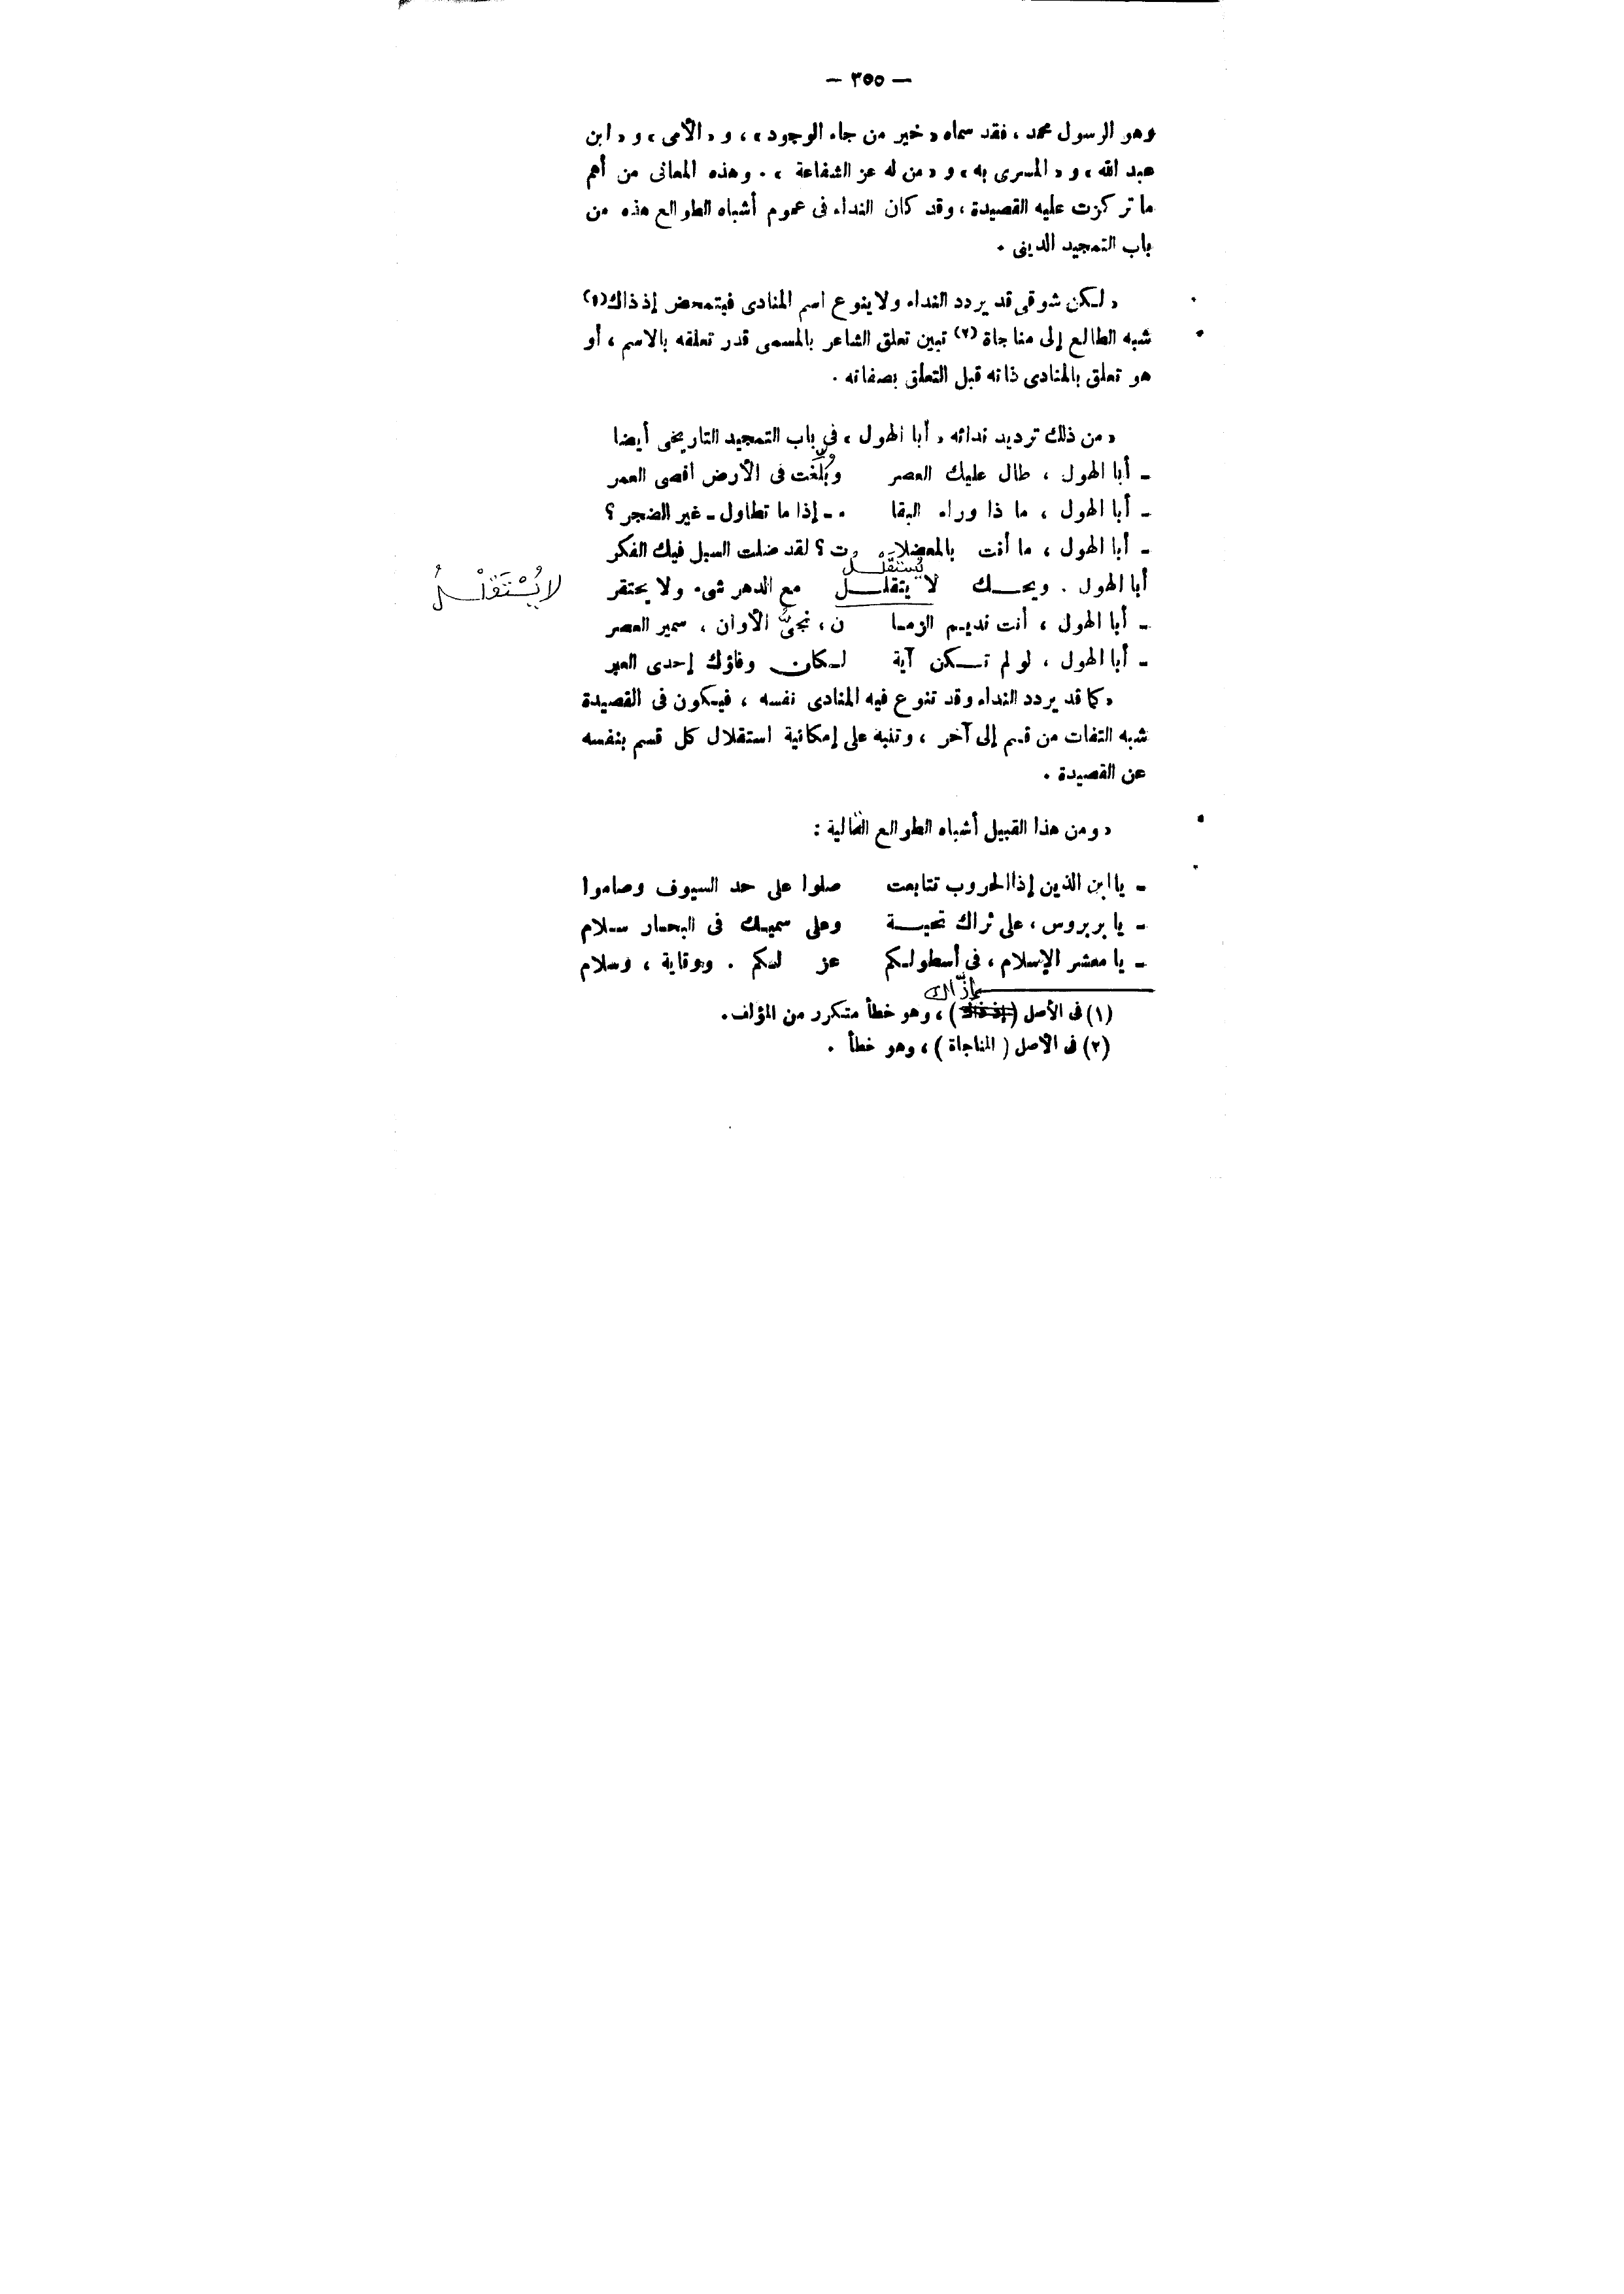 — ٣٥٥ —
وهو الرسول محمد ، فقد سماه « خير من جاء الوجود » ، و « الأمى » و « ابن
عبد الله » و « المسرى به » و « من له عز الشفاعة » . وهذه المعانى من أهم
ما تركزت عليه القصيدة ، وقد كان النداء فى عموم أشباه الطوالع هذه من
باب التمجيد الدينى .
« لكن شوقى قد يردد النداء ولا ينوع اسم المنادى فيتمحض إذ ذاك (١)
شبه الطالع إلى مناجاة (٢) تبين تعلق الشاعر بالمسمى قدر تعلقه بالاسم ، أو
هو تعلق بالمنادى ذاته قبل التعلق بصفاته .
« من ذلك ترديد ندائه « أبا الهول » فى باب التمجيد التاريخى أيضا
ـ أبا الهول ، طال عليك العصر وبُلِّغت فى الأرض أقصى العمر
ـ أبا الهول ، ما ذا وراء البقا ء ـ إذا ما تطاول ـ غير الضجر ؟
ـ أبا الهول ، ما أنت بالمعضلا ت ؟ لقد ضلت السبل فيك الفكر
يُسْتَقْلَلُ
أبا الهول . ويحك لا يتقلل مع الدهر شىء ولا يحتقر لا يُسْتَقْلَلُ
ـ أبا الهول ، أنت نديم الزما ن ، نجىُّ الأوان ، سمير العصر
ـ أبا الهول ، لو لم تكن آية لكان وفاؤك إحدى العبر
« كما قد يردد النداء وقد تنوع فيه المنادى نفسه ، فيكون فى القصيدة
شبه التفات من قسم إلى آخر ، وتنبه على إمكانية استقلال كل قسم بنفسه
عن القصيدة .
« ومن هذا القبيل أشباه الطوالع التالية :
ـ يا ابن الذين إذا الحروب تتابعت صلوا على حد السيوف وصاموا
ـ يا بربروس ، على ثراك تحية وعلى سميك فى البحار سلام
ـ يا معشر الإسلام ، فى أسطولكم عز لكم . ووقاية ، وسلام
(١) فى الأصل ( إذ ذاك ) ، وهو خطأ متكرر من المؤلف .
(٢) فى الأصل ( المناجاة ) ، وهو خطأ .